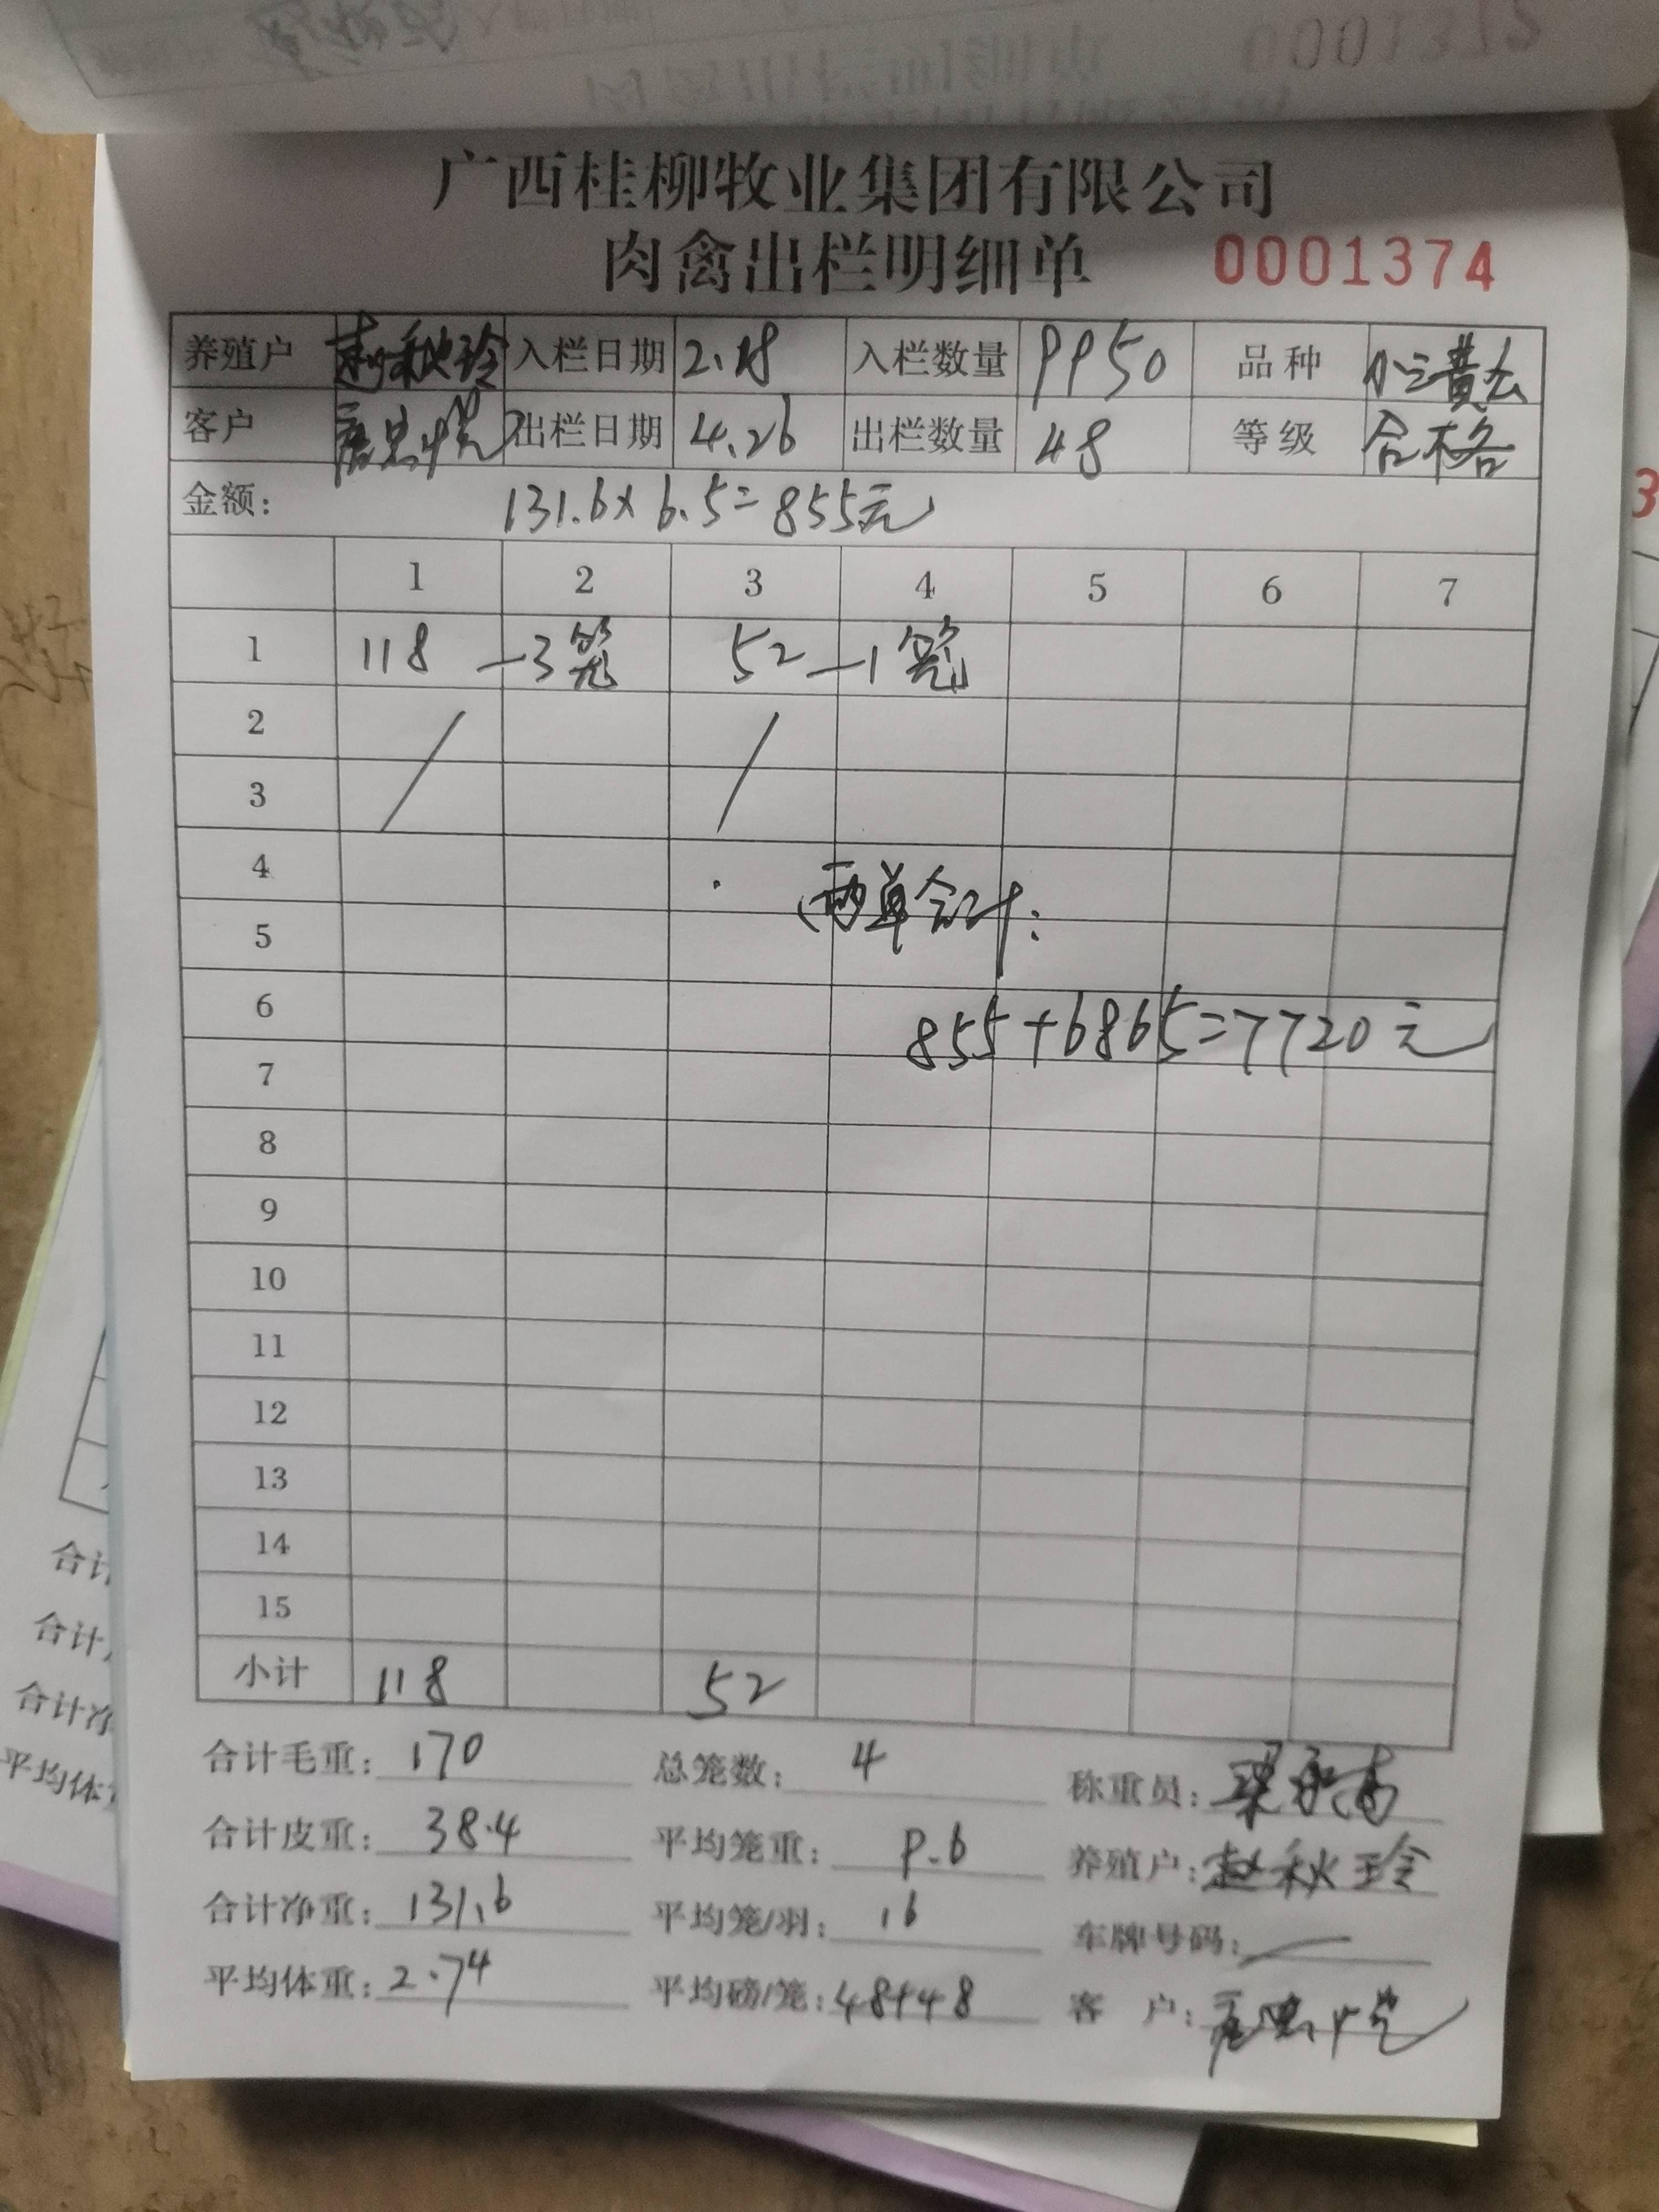 广西桂柳牧业集团有限公司
肉禽出栏明细单 0001374
养殖户 赵秋玲 入栏日期 2.18 入栏数量 9950 品种
客户 出栏日期 4.26 出栏数量 48 等级 合格
金额: 131.6×6.5=855元
1 2 3 4 5 6 7
1 118 —3笼 52 —1笼
2
3
4
两单合计:
5
6
855+6865=7720元
7
8
9
10
11
12
13
14
15
小计 118 52
合计毛重: 170 总笼数: 4 称重员:
合计皮重: 38.4 平均笼重: 9.6 养殖户: 赵秋玲
合计净重: 131.6 平均笼/羽: 16 车牌号码: —
平均体重: 2.74 平均磅/笼: 48+48 客 户: